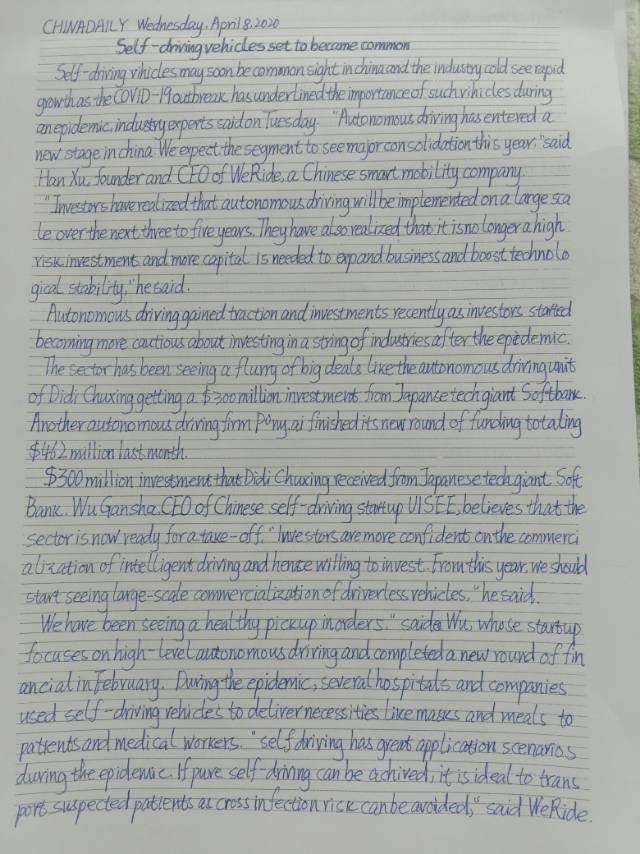 CHINADAILY Wednesday, April 8. 2020
Self-driving vehicles set to became common
Self-driving vihicles may soon be common sight in china and the industry cold see rapid
growth as the COVID-19 outbreak has underlined the importance of such vihicles during
an epidemic, industry experts said on Tuesday. "Autonomous driving has entered a
new stage in china. We expect the segment to see major consolidation this year," said
Han Xu, founder and CEO of WeRide, a Chinese smart mobility company.
"Investors have realized that autonomous driving will be implemented on a large sca
le over the next three to five years. They have also realized that it is no longer a high
risk investment and more capital is needed to expand business and boost technolo
gical stability," he said.
Autonomous driving gained traction and investments recently as investors started
becoming more cautious about investing in a string of industries after the epidemic.
The sector has been seeing a flurry of big deals like the autonomous driving unit
of Didi Chuxing getting a $300 million investment from Japanse tech giant Softbank.
Another autonomous driving firm Pony.ai finished its new round of funding totaling
$462 million last month.
$300 million investment that Didi Chuxing received from Japanese tech giant Soft
Bank. Wu Gansha, CEO of Chinese self-driving startup UISEE, believes that the
sector is now ready for a take-off. "Investors are more confident on the commerci
alization of intelligent driving and hence willing to invest. From this year, we should
start seeing large-scale commercialization of driverless vehicles," he said.
We have been seeing a healthy pickup in orders." said Wu, whose startup
focuses on high-level autonomous driving and completed a new round of fin
ancial in February. During the epidemic, several hospitals and companies
used self-driving vehicles to deliver necessities like masks and meals to
patients and medical workers. "self driving has great application scenarios
during the epidemic. If pure self-driving can be achived, it is ideal to trans
port suspected patients as cross infection risk can be avoided," said WeRide.